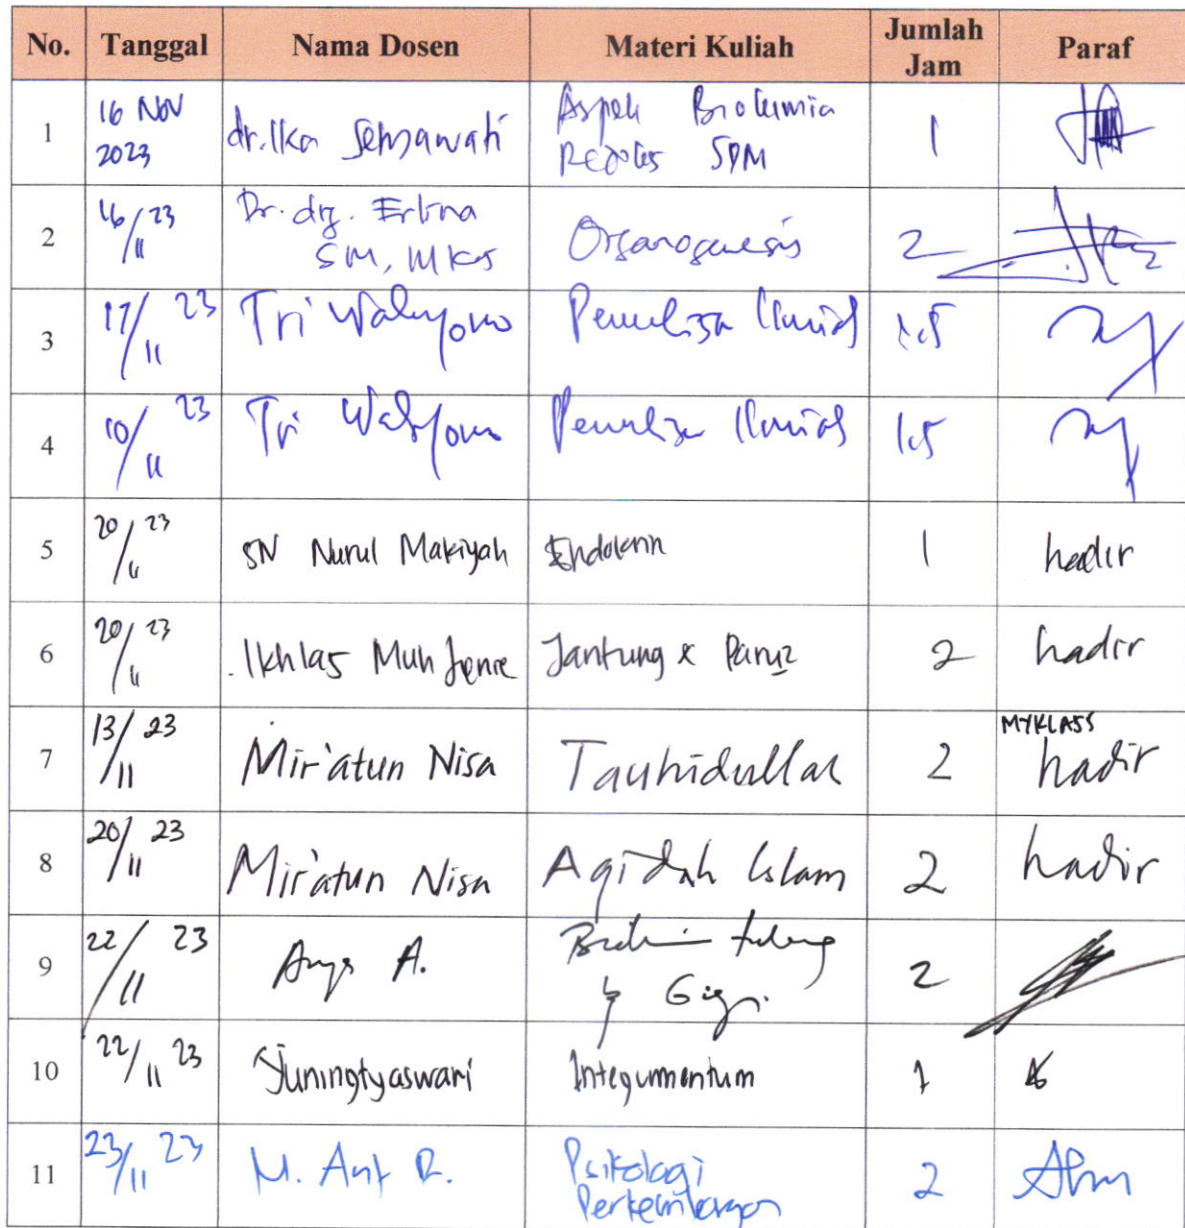 No. Tanggal Nama Dosen Materi Kuliah Jumlah Jam Paraf
1 16 NOV 2023 dr. Ika Setyawati Aspek Biokimia SPM 1
2 16/11 23 Dr. drg. Erlina SM, MKes Organogenesis 2
3 17/11 23 Tri Wahyono Penulisan Ilmiah 1.5
4 10/11 23 Tri Wahyono Penulisan Ilmiah 1.5
5 20/11 23 SN Nurul Makiyah Endokrin 1 hadir
6 20/11 23 Ikhlas Muh Jenie Jantung & Paru2 2 hadir
7 13/11 23 Mir'atun Nisa Tauhidullah 2 MYKLASS hadir
8 20/11 23 Mir'atun Nisa Aqidah Islam 2 hadir
9 22/11 23 A. Gigi. 2
10 22/11 23 Yuningtyaswari Integumentum 1
11 23/11 23 M. R. Psikologi Perkembangan 2